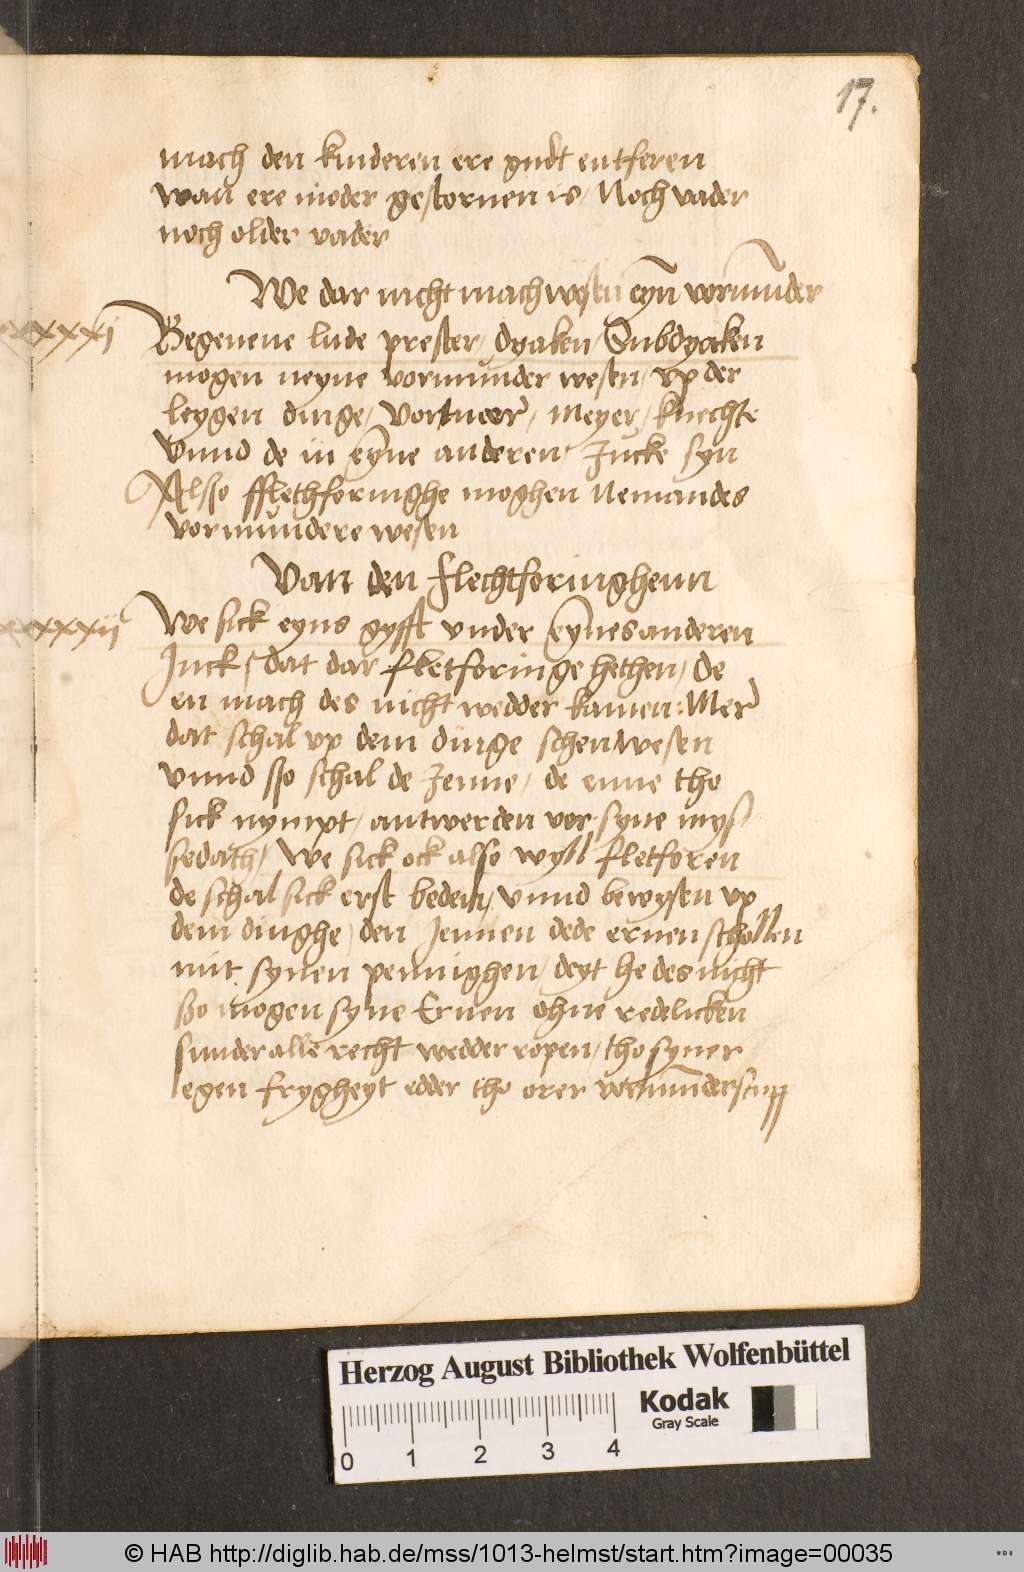 17.
mach den kinderen ere gudt entferen
wan ere moder gestoruen is / Noch vader
noch older vader
We dar nicht mach wesen eyn vormunder
xxxxxi Begeuene lude prester / dyaken / Subdyaken
mogen neyne vormunder wesen / vp der
leygen dinge / Vortmeer / Meyer / knechte
Vnnd de in eyne anderen Jucke syn
Alsso fflethforinghe moghen Nemandes
vormundere wesen
Van den flechtforinghenn
xxxxxii We sick eyns gyfft vnder eynes anderen
Juck / dat dar fletforinge hethen / De
en mach des nicht wedder kamen : Mer
dat schal vp dem dinge schen wesen
Vnnd sso schal de Jenne / de enne tho
sick nympt / antwerden vor syne mys
sedath / We sick ock also wyll fletforen
de schal sick erst beden / vnnd bewysen vp
dem dinghe / den Jennen dede eruen schollen
mit synen pennighen / deyt he des nicht
sso mogen syne Eruen ohne redelicken
sunder alle recht wedder ropen / tho syner
egen frygheyt edder tho orer vormunderscupp
Herzog August Bibliothek Wolfenbüttel
Kodak
Gray Scale
0 1 2 3 4
© HAB http://diglib.hab.de/mss/1013-helmst/start.htm?image=00035